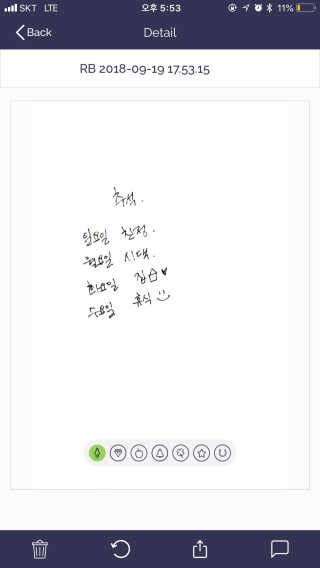 SKT LTE 오후 5:53 11%
Back Detail
RB 2018-09-19 17.53.15
추석.
일요일 친정.
월요일 시댁.
화요일 집
수요일 휴식